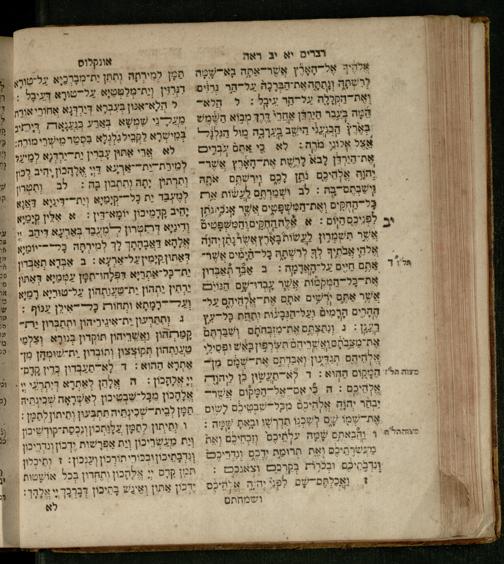 דברים יא יב ראה
אונקלוס
אלהיך אל־הארץ אשר־אתה בא־שמה
לרשתה ונתתה את־הברכה על־הר גרזים
ואת־הקללה על־הר עיבל׃ ל הלא־
המה בעבר הירדן אחרי דרך מבוא השמש
בארץ הכנעני הישב בערבה מול הגלגל
אצל אלוני מרה׃ לא כי אתם עברים
את־הירדן לבא לרשת את־הארץ אשר־
יהוה אלהיכם נתן לכם וירשתם אתה
וישבתם־בה׃ לב ושמרתם לעשות את
כל־החקים ואת־המשפטים אשר אנכי נתן
לפניכם היום׃ א אלה החקים והמשפטים
אשר תשמרון לעשות בארץ אשר נתן יהוה
אלהי אבתיך לך לרשתה כל־הימים אשר־
אתם חיים על־האדמה׃ ב אבד תאבדון
את־כל־המקמות אשר עבדו־שם הגוים
אשר אתם ירשים אתם את־אלהיהם על־
ההרים הרמים ועל־הגבעות ותחת כל־עץ
רענן׃ ג ונתצתם את־מזבחתם ושברתם
את־מצבתם ואשריהם תשרפון באש ופסילי
אלהיהם תגדעון ואבדתם את־שמם מן־
המקום ההוא׃ ד לא־תעשון כן ליהוה
אלהיכם׃ ה כי אם־אל־המקום אשר־
יבחר יהוה אלהיכם מכל־שבטיכם לשום
את־שמו שם לשכנו תדרשו ובאת שמה׃
ו והבאתם שמה עלתיכם וזבחיכם ואת
מעשרתיכם ואת תרומת ידכם ונדריכם
ונדבתיכם ובכרת בקרכם וצאנכם׃
ז ואכלתם־שם לפני יהוה אלהיכם
ושמחתם
יב
תל״ד
מצוה תל״ו
תמן למירתה ותתן ית־מברכיא על־טורא
דגרזין וית־מלטטיא על־טורא דעיבל׃
ל הלא־אנון בעברא דירדנא אחורי אורח
מעלני שמשא בארע כנענאה דיתיב
במישרא לקביל גלגלא בסטר מישרי מורה׃
לא ארי אתון עברין ית־ירדנא למיעל
למירת ית־ארעא דיי אלהכון יהיב לכון
ותרתון יתה ותתבון בה׃ לב ותטרון
למעבד ית כל־קימיא וית־דיניא דאנא
יהיב קדמיכון יומא־דין׃ א אלין קימיא
ודיניא דתטרון למעבד בארעא דיהב יי
אלהא דאבהתך לך למירתה כל־יומיא
דאתון קימין על־ארעא׃ ב אבדא תאבדון
ית־כל־אתריא דפלחו־תמן עממיא דאתון
ירתין יתהון ית־טעותהון על־טוריא רמיא
ועל־רמתא ותחות כל־אילן עבוף׃
ג ותתרעון ית־אגוריהון ותתברון ית־
קמתהון ואשריהון תוקדון בנורא וצלמי
טעותהון תקוצצון ותובדון ית־שומהון מן־
אתרא ההוא׃ ד לא־תעבדון כדין קדם־
יי אלהכון׃ ה אלהן לאתרא דיתרעי יי
אלהכון מכל־שבטיכון לאשראה שכינתיה
תמן לבית־שכינתיה תתבעון ותיתון לתמן׃
ו ותיתון לתמן עלותכון ונכסת־קודשיכון
וית מעשריכון וית אפרשות ידכון ונדריכון
ונדבתיכון ובכירי תורכון וענכון׃ ז ותיכלון
תמן קדם יי אלהכון ותחדון בכל אושטות
ידכון אתון ואינש בתיכון דברכך יי אלהך׃
לא